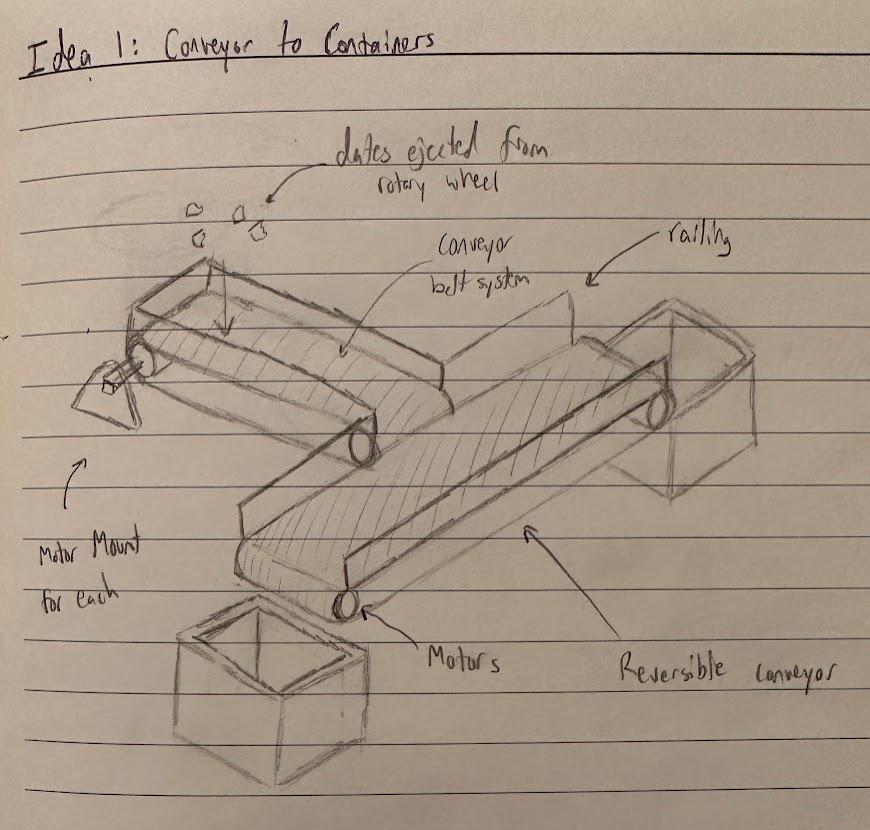 Idea 1: Conveyor to Containers
dates ejected from
rotary wheel
conveyor
belt system
railing
Motor Mount
for each
Motors
Reversible conveyor